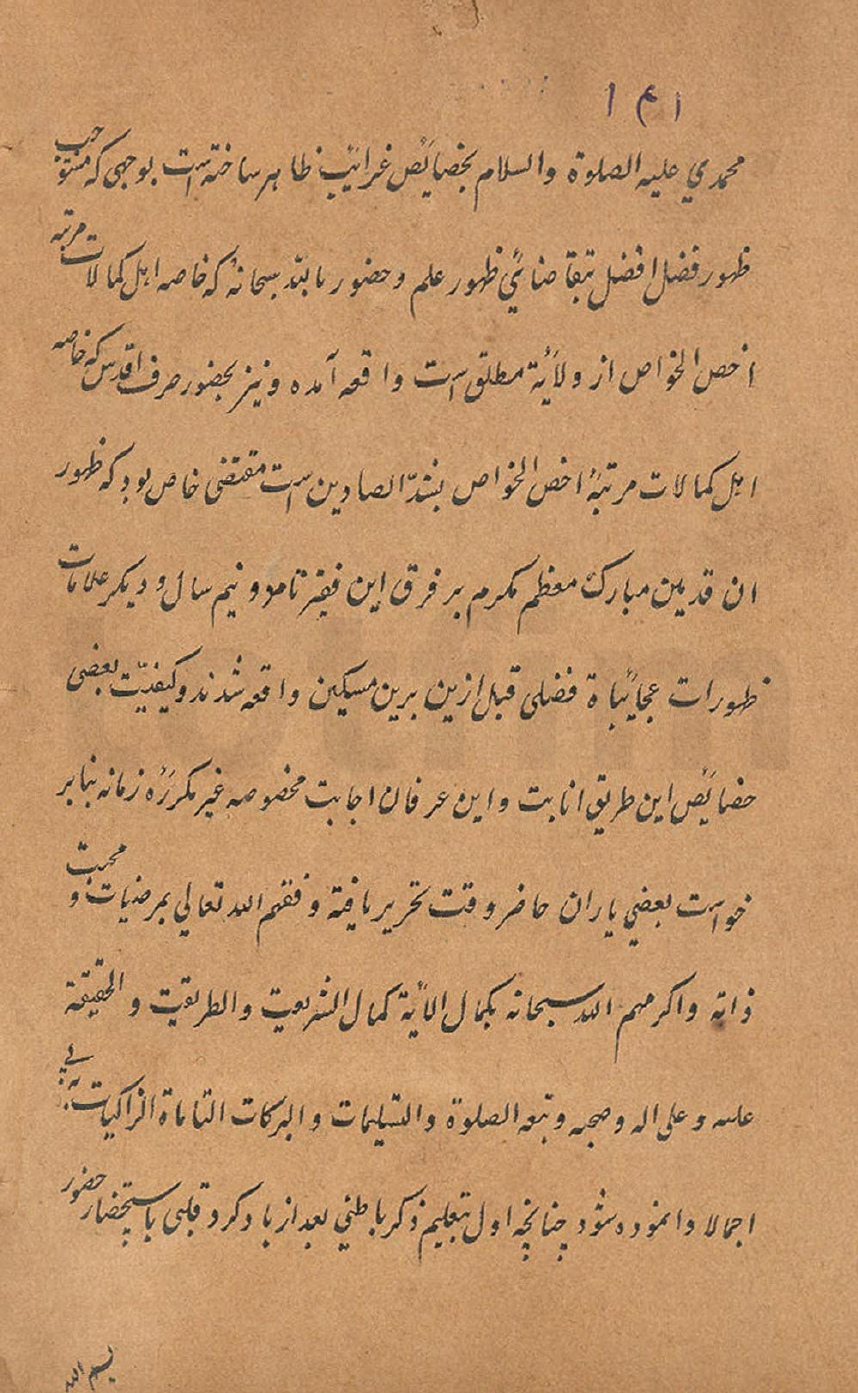 ۱۴۱
محمدي علیه الصلوة والسلام بخصایٔص غرایٔب ظاهر ساخته است بوجهی که مستوجب
ظهور فضل افضل بتقاضایٔي ظهور علم و حضور باللہ سبحانہٗ که خاصه اهل کمالات مرتبه
اخص الخواص از ولأیة مطلق است واقعه آمده و نیز بحضور صرف اقدس که خاصه
اهل کمالات مرتبۂ اخص الخواص است مقتضی خاص بود که ظهور
ان قدمین مبارک معظم مکرم بر فرق این فقیر تا مد و نیم سال و دیکر علامات
ظهورات فضلی قبل ازین برین مسکین واقعه شدند و کیفیّت بعضی
خصایٔص این طریق انابت و این عرفان اجابت مخصوصه غیر مکررۂ زمانه بنابر
خواست بعضي یاران حاضر وقت تحریر یافة وفقهم الله تعالي بمرضیات و محبت
ذاته واکرمهم الله سبحانه بکمال الأیة کمال الشریعت والطریقت والحقیقة
علیه و علی اله و صحبه و تبعه الصلوة والتسلیمات والبرکات التامات الزاکیات
اجمالا وانموده شود چنانچه اول بتعلیم ذکر باطني بعد از یاد کرد قلبی باستحضار حضور
بسم الله